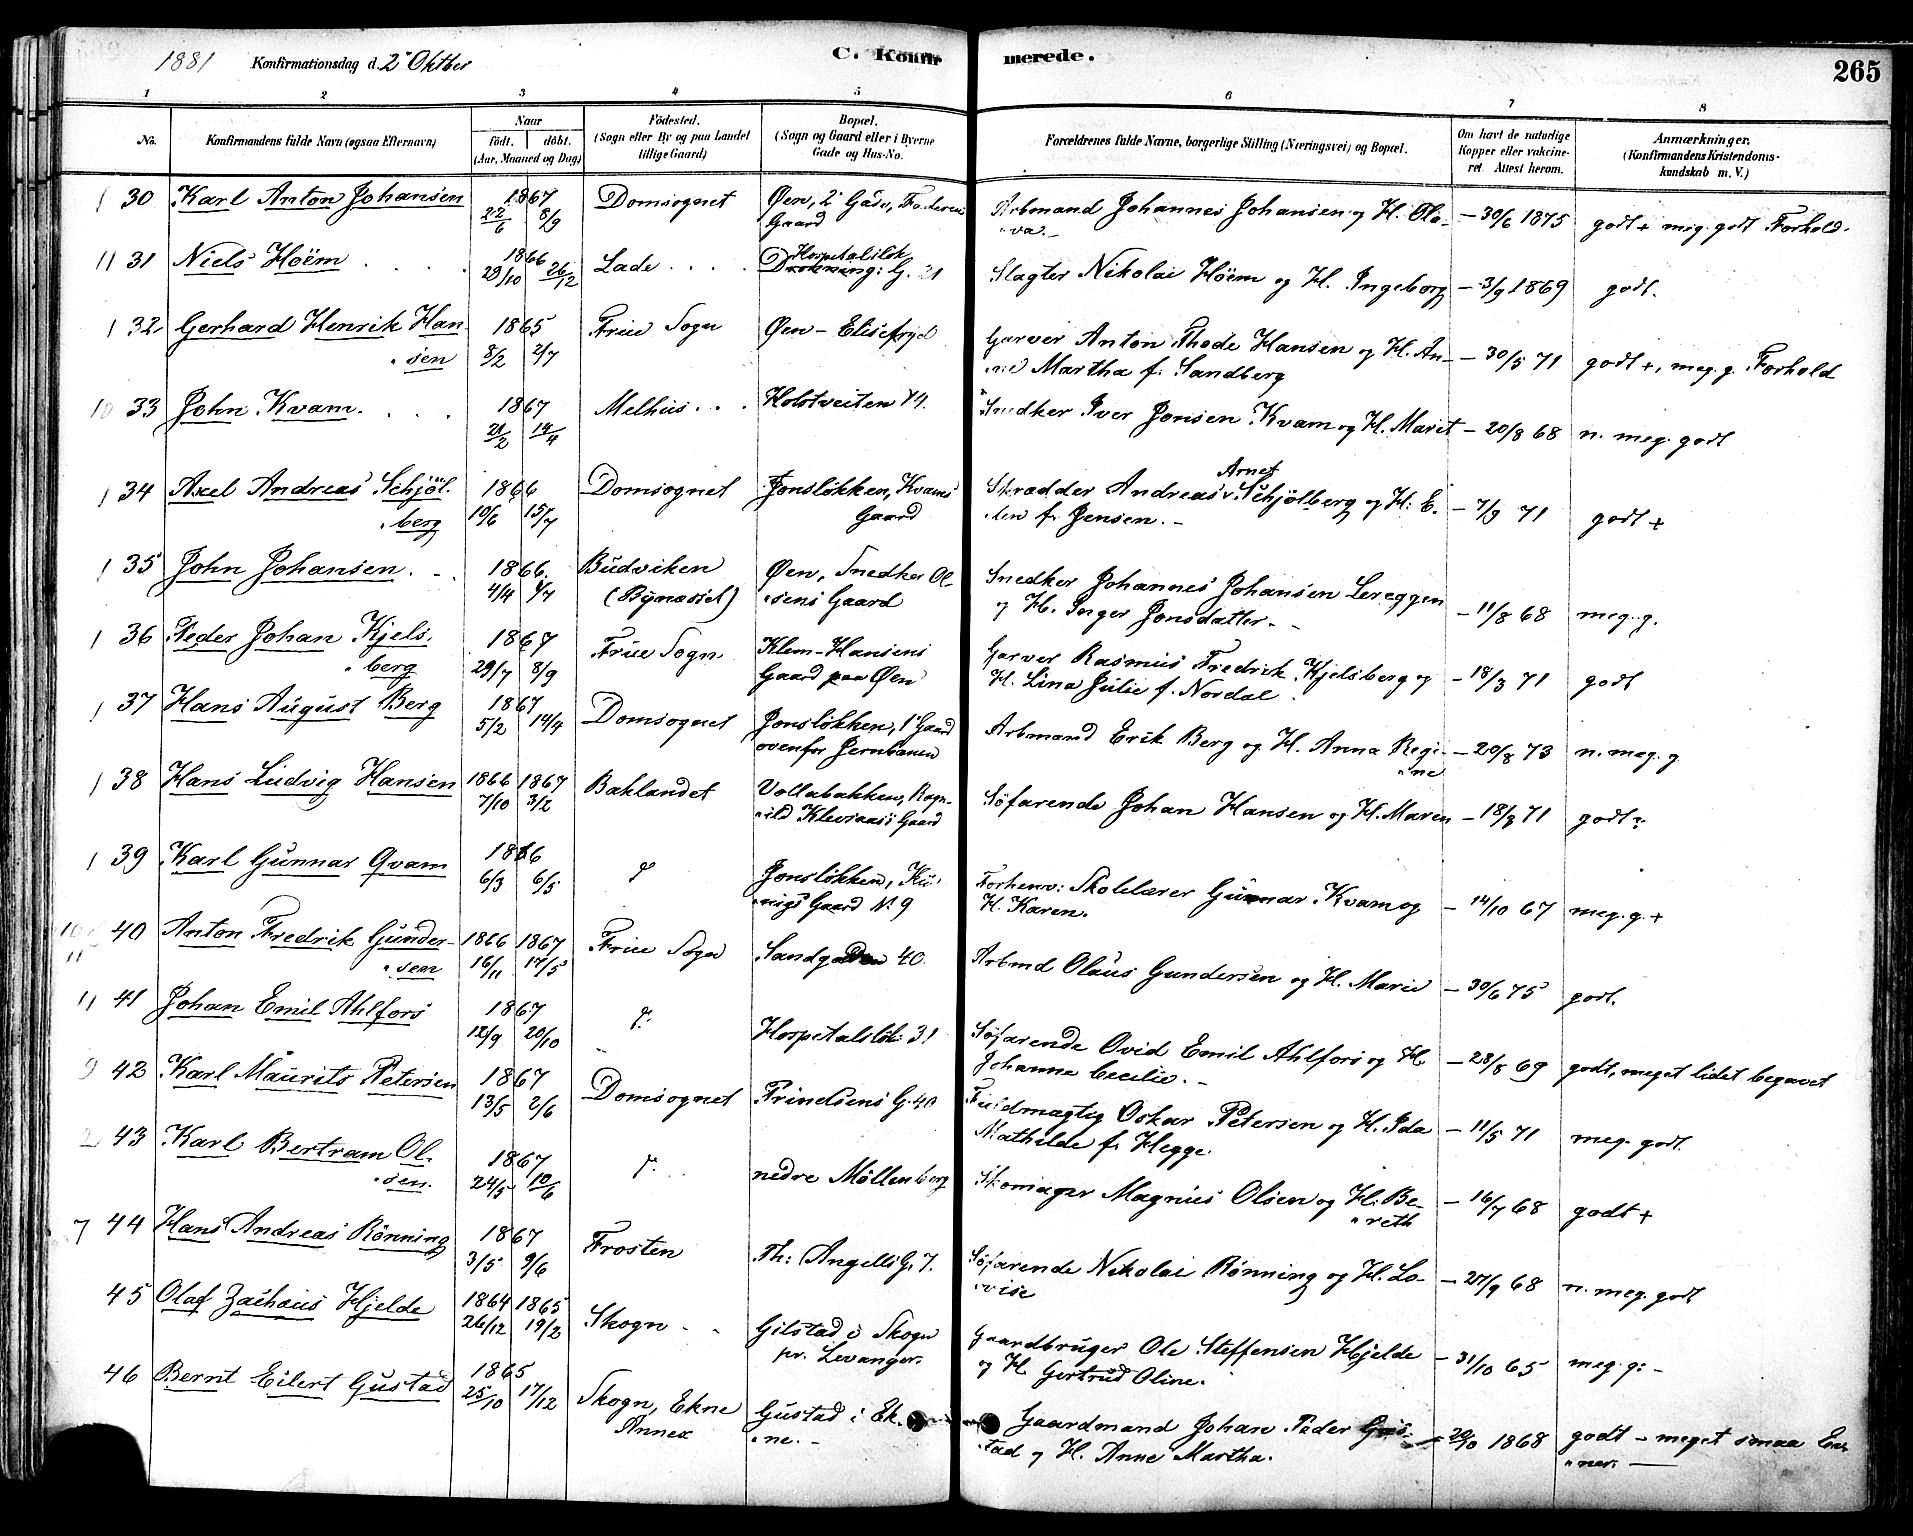 1881 Konfirmationsdag d. 2' Oktber C. Konfirmerede. 265
1 2 3 4 5 6 7 8
No. Konfirmandens fulde Navn (ogsaa Efternavn) Naar født. døbt. (Aar, Maaned og Dag) Fødested. (Sogn eller By og paa Landet tillige Gaard) Bopæl. (Sogn og Gaard eller i Byerne Gade og Hus-No. Forældrenes fulde Navne, borgerlige Stilling (Næringsvei) og Bopæl. Om havt de naturlige Kopper eller vakcineret. Attest herom. Anmærkninger. (Konfirmandens Kristendomskundskab m. V.)
1 30 Karl Anton Johansen 1867 22/6 8/9 Domsognet Øen, 2' Gade, Faderens Gaard Arbmand Johannes Johansen og H. Olava. – 30/6 1875 godt + meg. godt Forhold.
11 31 Niels Höem 1866 29/10 26/12 Lade Hospetalslök G. 21 Slagter Nikolai Höem og H. Ingeborg – 3/9 1869 godt.
1 32 Gerhard Henrik Hansen 1865 8/2 2/7 Frue Sogn Øen – Elisefryd Garver Anton Thode Hansen og H. Anne Martha f. Sandberg – 30/5 71 godt +, meg. g. Forhold
10 33 John Kvam 1867 21/2 14/4 Melhus Holstveiten 19. Snedker Iver Jonsen Kvam og H. Marit – 20/8 68 n. meg. godt
1 34 Axel Andreas Schjölberg 1866 10/6 15/7 Domsognet Jonslökken, Kvams Gaard Skrædder Andreas Arnt Schjölberg og H. Elen f. Jensen. – 7/9 71 godt +
1 35 John Johansen 1866. 4/4 1/7 Budviken (Bynæsset) Øen, Snedker Olsens Gaard Snedker Johannes Johansen Lereggen og H. Inger Jonsdatter. – 11/8 68 meg. g.
1 36 Peder Johan Kjelsberg 1867 29/7 8/9 Frue Sogn Klem-Hansens Gaard paa Øen Garver Rasmus Fredrik Kjelsberg og H. Lina Julie f. Nordal – 18/3 71 godt
1 37 Hans August Berg 1867 5/2 14/4 Domsognet Jonslökken, 1' Gaard ovenfor Jernbanen Arbmand Erik Berg og H. Anna Regine – 20/8 73 n. meg. g
1 38 Hans Ludvig Hansen 1866 7/10 1867 3/2 Baklandet Vollabakken, Ragnild Klevsaas' Gaard Söfarende Johan Hansen og H. Maren – 18/3 71 godt
1 39 Karl Gunnar Qvam 1866 6/3 6/5 Jonslökken, Kunigs Gaard N. 9 Forhenv: Skolelærer Gunnar Kvam og H. Karen. – 14/10 67 meg. g. +
10 11 40 Anton Fredrik Gundersen 1866 16/11 1867 17/5 Frue Sogn Sandgaden 40. Arbmd Olaus Gundersen og H. Marie – 30/6 75 godt.
11 41 Johan Emil Ahlfors 1867 12/9 20/10 Hospetalslök: 31 Söfarende Ovid Emil Ahlfors og H. Johanne Cecilie. – 28/8 69 godt, meget lidet begavet
9 42 Karl Maurits Petersen 1867 13/5 2/6 Domsognet Prindsens G. 40 Fuldmægtig Oskar Petersen og H. Ida Mathilde f. Hegge. – 11/5 71 meg. godt.
2 43 Karl Bertram Olsen. 1867 24/5 10/6 nedre Möllenberg Skomager Magnus Olsen og H. Bereth – 16/7 68 godt +
7 44 Hans Andreas Rönning 1867 3/5 9/6 Frosten Th: Angells G. 7. Söfarende Nikolai Rönning og H. Lovise – 27/9 68 n. meg. godt
45 Olaf Zachæus Hjelde 1864 26/12 1865 19/2 Skogn Gilstad i Skogn pr. Levanger. Gaardbruger Ole Steffensen Hjelde og H. Gertrud Oline. – 31/10 65 meg. g. –
46 Bernt Eilert Gustad 1865 25/10 17/12 Skogn, Ekne Annex Gustad i Ekne. – Gaardmand Johan Peder Gustad og H. Anne Martha. 1868 godt – meget smaa Evner. –